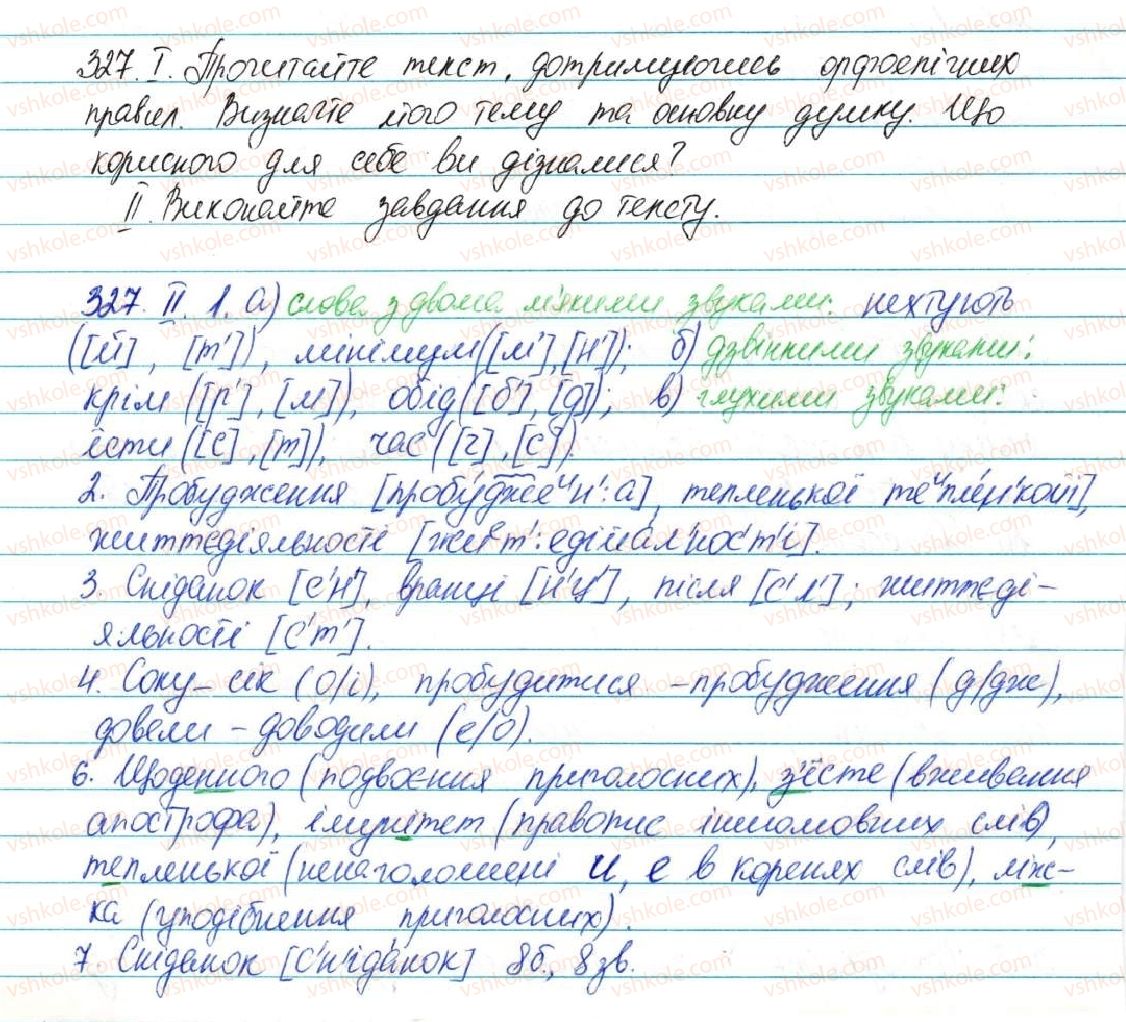 327. І. Прочитайте текст, дотримуючись орфоепічних
правил. Визначте його тему та основну думку. Що
корисного для себе ви дізналися?
ІІ. Виконайте завдання до тексту.
327. ІІ. 1. а) слова з двома м'якими звуками: нехтують
([й], [т']), мінімум([м'],[н']); б) дзвінкими звуками:
крім ([р'],[м]), обід([б'],[д]); в) глухими звуками:
їсти ([с],[т]), час ([ч],[с]).
2. Пробудження [пробу́дже^и н':а], тепленької те^и пле́н'койі],
життєдіяльності [жи^е т':едійал'нос'т'і].
3. Сніданок [с'н'], вранці [н'ц'], після [с'л']; життєді-
яльності [с'т'].
4. Соку – сік (о/і), пробудитися – пробудження (д/дж),
довели – доводили (е/о).
6. Щоденного (подвоєння приголосних), з'їсте (вживання
апострофа), імунітет (правопис іншомовних слів),
тепленької (ненаголошені и, е в коренях слів), ліж-
ка (уподібнення приголосних).
7. Сніданок [с'н'іда́нок] 8б., 8зв.